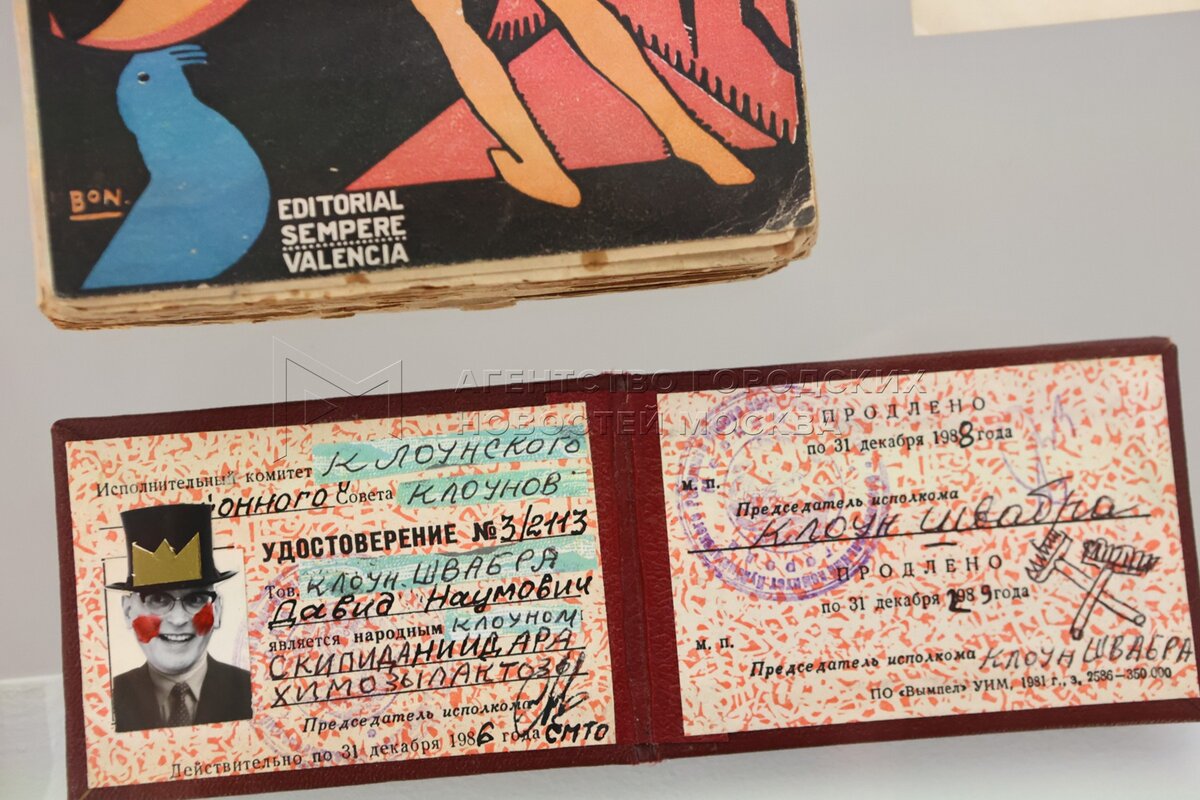 BON.
EDITORIAL
SEMPERE
VALENCIA
АГЕНТСТВО ГОРОДСКИХ
НОВОСТЕЙ МОСКВА
Исполнительный комитет КЛОУНСКОГО
ионного Совета КЛОУНОВ
УДОСТОВЕРЕНИЕ №3/2113
Тов. КЛОУН ШВАБРА
Давид Наумович
является народным КЛОУНОМ
СКИПИДАНИИДАРА
ХИМОЗЫЛАКТОЗЫ
Председатель исполкома
Действительно по 31 декабря 1986 года СМТО
ПРОДЛЕНО
по 31 декабря 1988 года
М. П.
Председатель исполкома
КЛОУН Швабра
ПРОДЛЕНО
по 31 декабря года
М. П.
Председатель исполкома КЛОУН ШВАБРА
ПО «Вымпел» УИМ, 1981 г., з. 2586—350.000